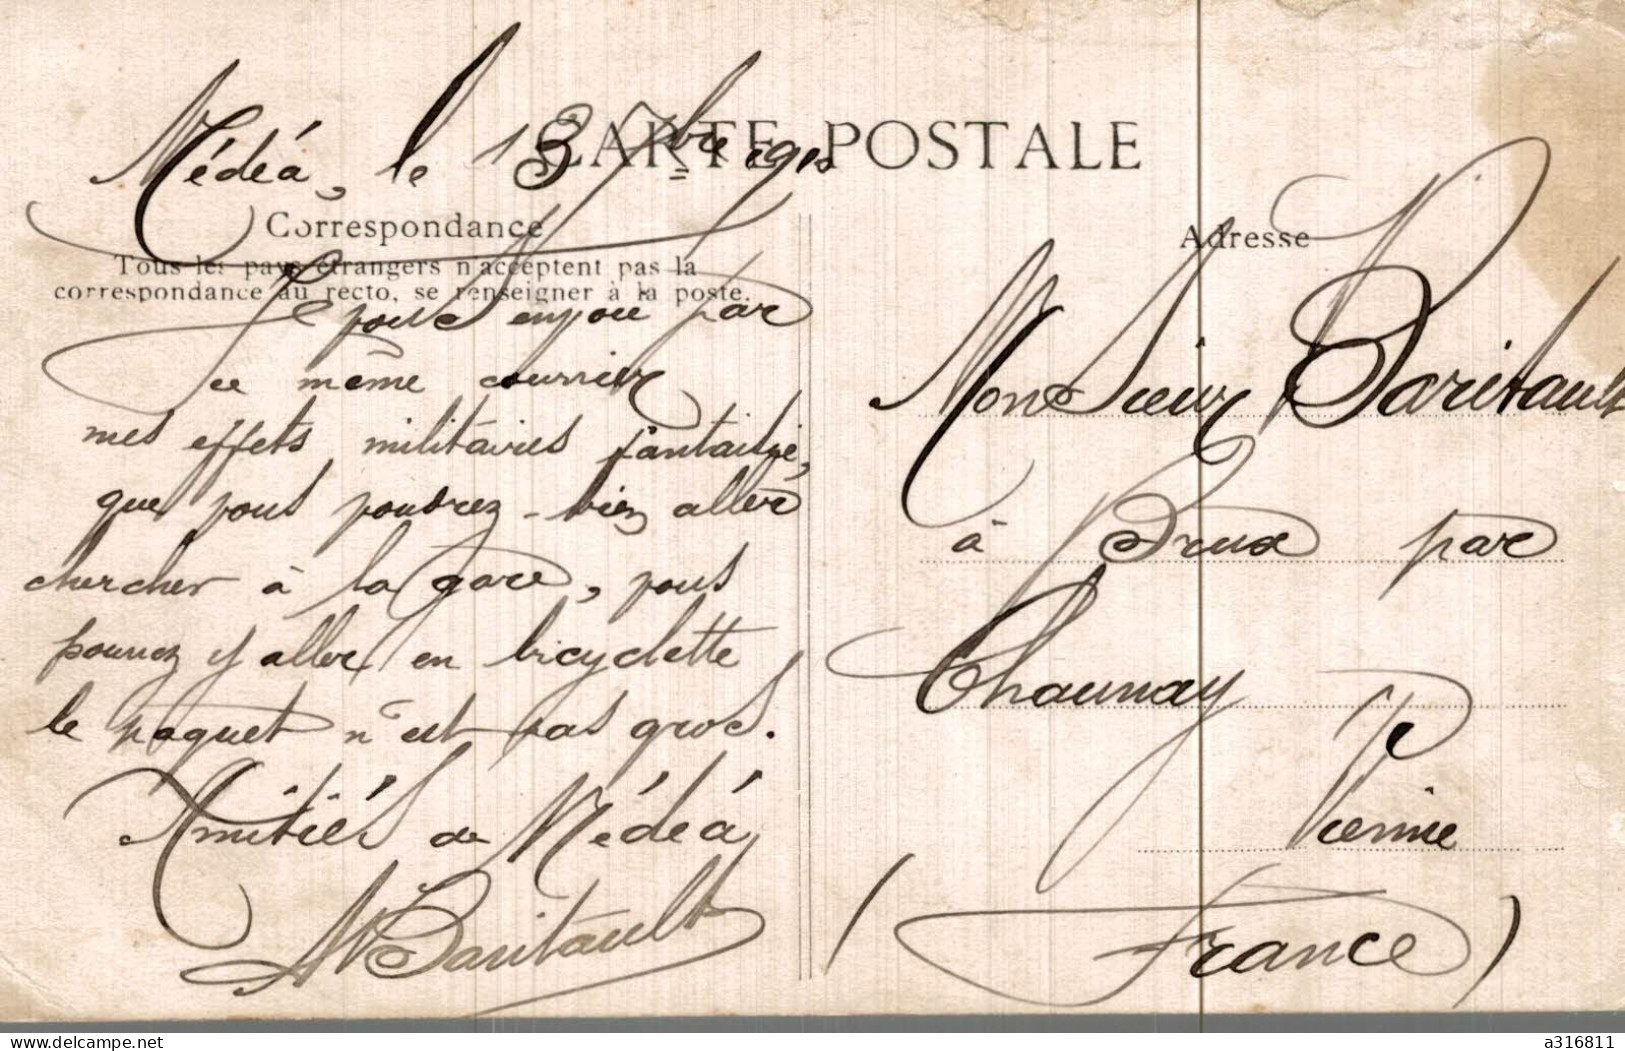 CARTE POSTALE
Médéa, le 13 7bre 1910
Correspondance
Tous les pays étrangers n'acceptent pas la
correspondance au recto, se renseigner à la poste.
Je vous envoie par
ce même courrier
mes effets militaires fantaisie,
que vous voudrez bien aller
chercher à la gare, vous
pouvez y aller en bicyclette
le paquet n'est pas gros.
Amitiés de Médéa
Baritault
Adresse
Monsieur Baritault
à Brux par
Chaunay
Vienne
(France)
delcampe.net
a316811